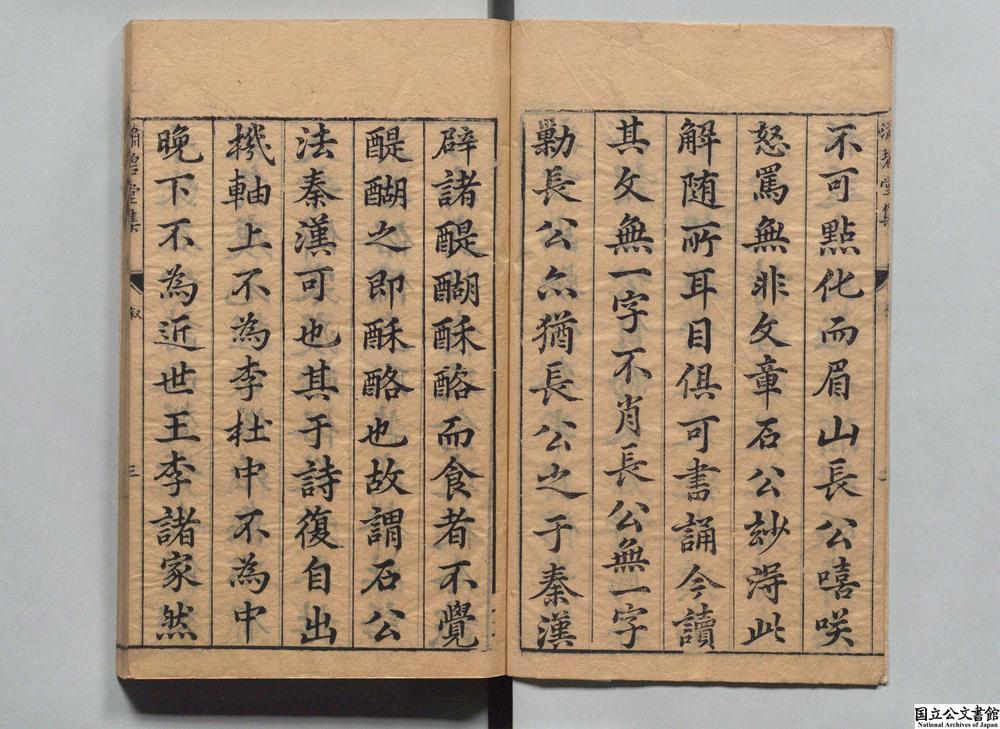 不可點化而眉山長公嘻咲
怒罵無非文章石公玅淂此
解随所耳目俱可書誦今讀
其文無一字不肖長公無一字
勦長公亦猶長公之于秦漢
辟諸醍醐酥酪而食者不覺
醍醐之即酥酪也故謂石公
法秦漢可也其于詩復自出
機軸上不為李杜中不為中
晚下不為近世王李諸家然
瀟碧堂集
叙
三
国立公文書館
National Archives of Japan